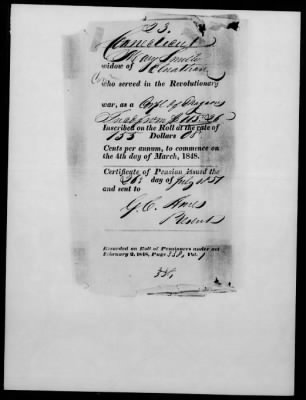 23.
Connecticut
Mary Smith
widow of Jonathan
who served in the Revolutionary
war, as a Corpl of Dragoons
Inscribed on the Roll at the rate of
155 Dollars 08
Cents per annum, to commence on
the 4th day of March, 1848.
Certificate of Pension issued the
26 day of July 1851
and sent to
G. C. Ames
Present
Recorded on Roll of Pensioners under act
February 2, 1848, Page 358, Vol. 1